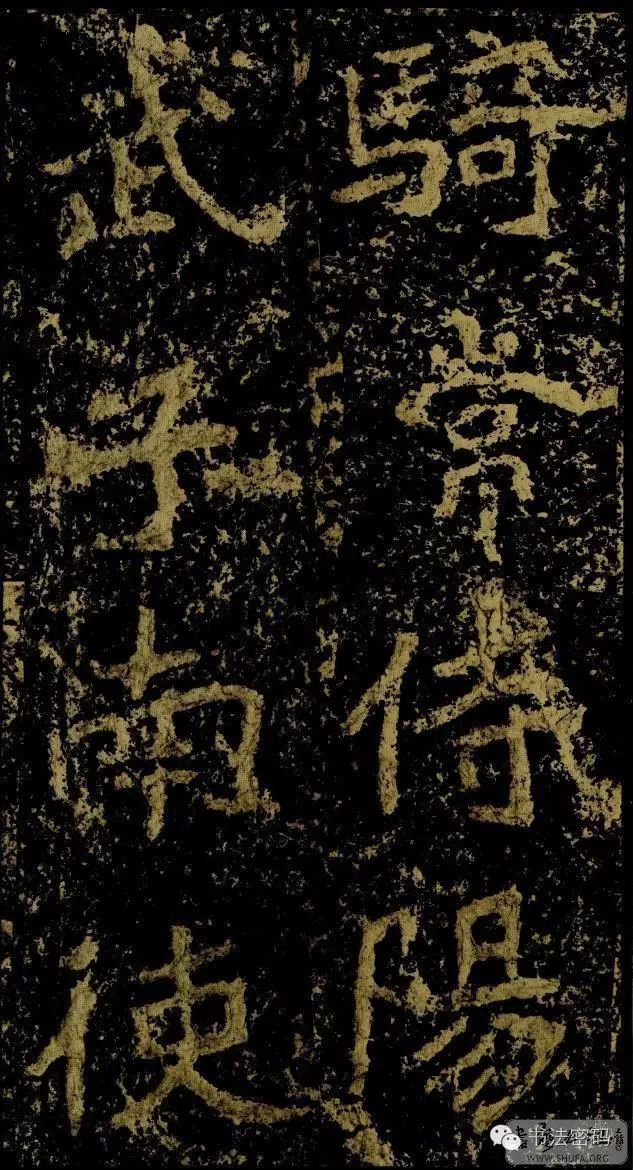 騎常侍陽
武子南使
书法密码
WWW.SHUFA.ORG